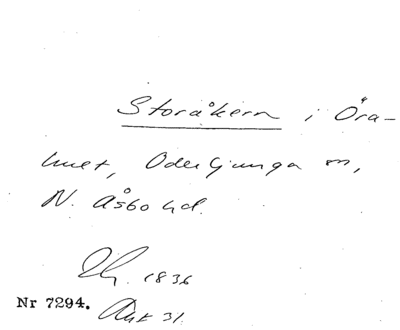 Storåkern i Öra-
huet, Oderljunga sn,
N. Åsbo hd.
1836
Nr 7294. Akt 31.